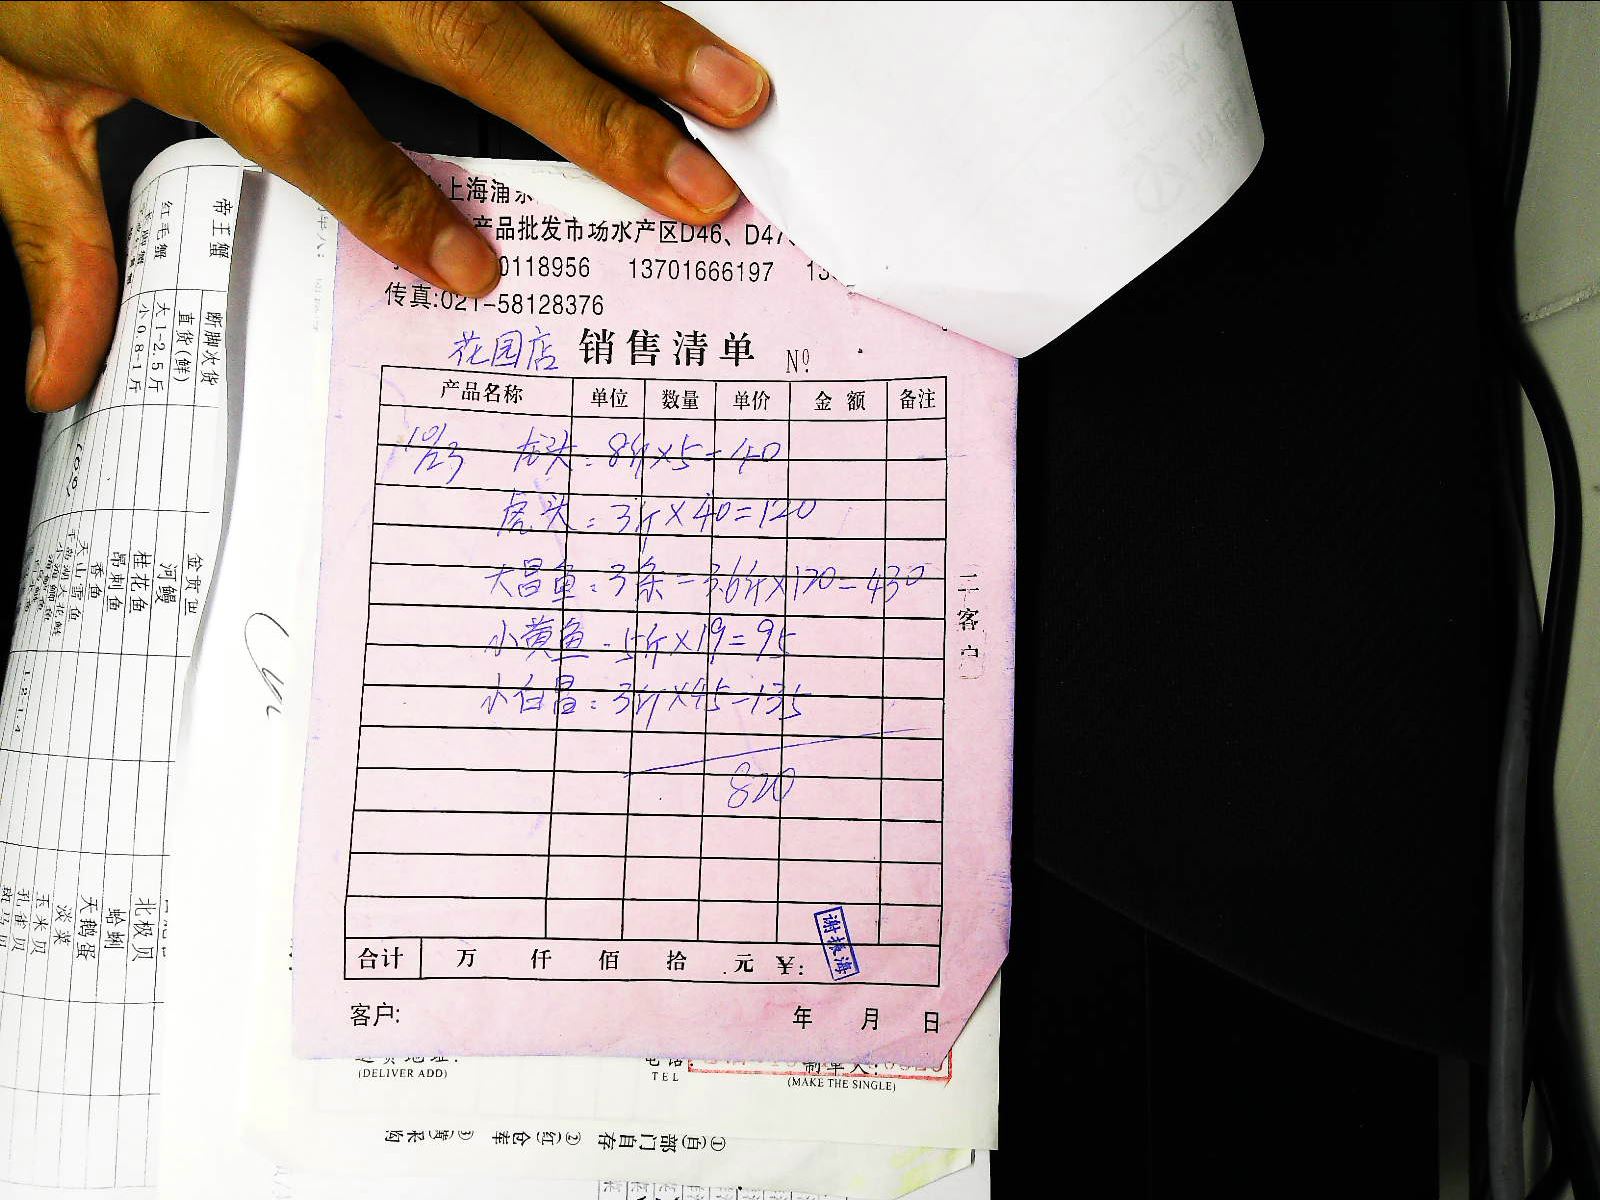 上海涌
产品批发市场水产区D46、D47、
0118956 13701666197 13
传真:021-58128376
花园店 销售清单 Nº
产品名称 单位 数量 单价 金额 备注
10/23 龙头:8斤×5=40
虎头:3斤×40=120
大昌鱼:3条=3.6斤×120=430
小黄鱼:5斤×19=95
小白昌:3斤×45=135
820
二客户
谢振海
合计 万 仟 佰 拾 元 ¥:
客户: 年 月 日
电话: 制单人:
(DELIVER ADD) TEL (MAKE THE SINGLE)
①(白)部门自存 ②(红)仓库 ③(黄)采购
帝王蟹
红毛蟹
断脚次货
直货(鲜)
大1-2.5斤
小0.8-1斤
金贵鱼
河鳗
桂花鱼
昂刺鱼
香鱼
天山雪鱼
北极贝
蛤蜊
天鹅蛋
淡菜
玉米贝
孔雀贝
斑马贝